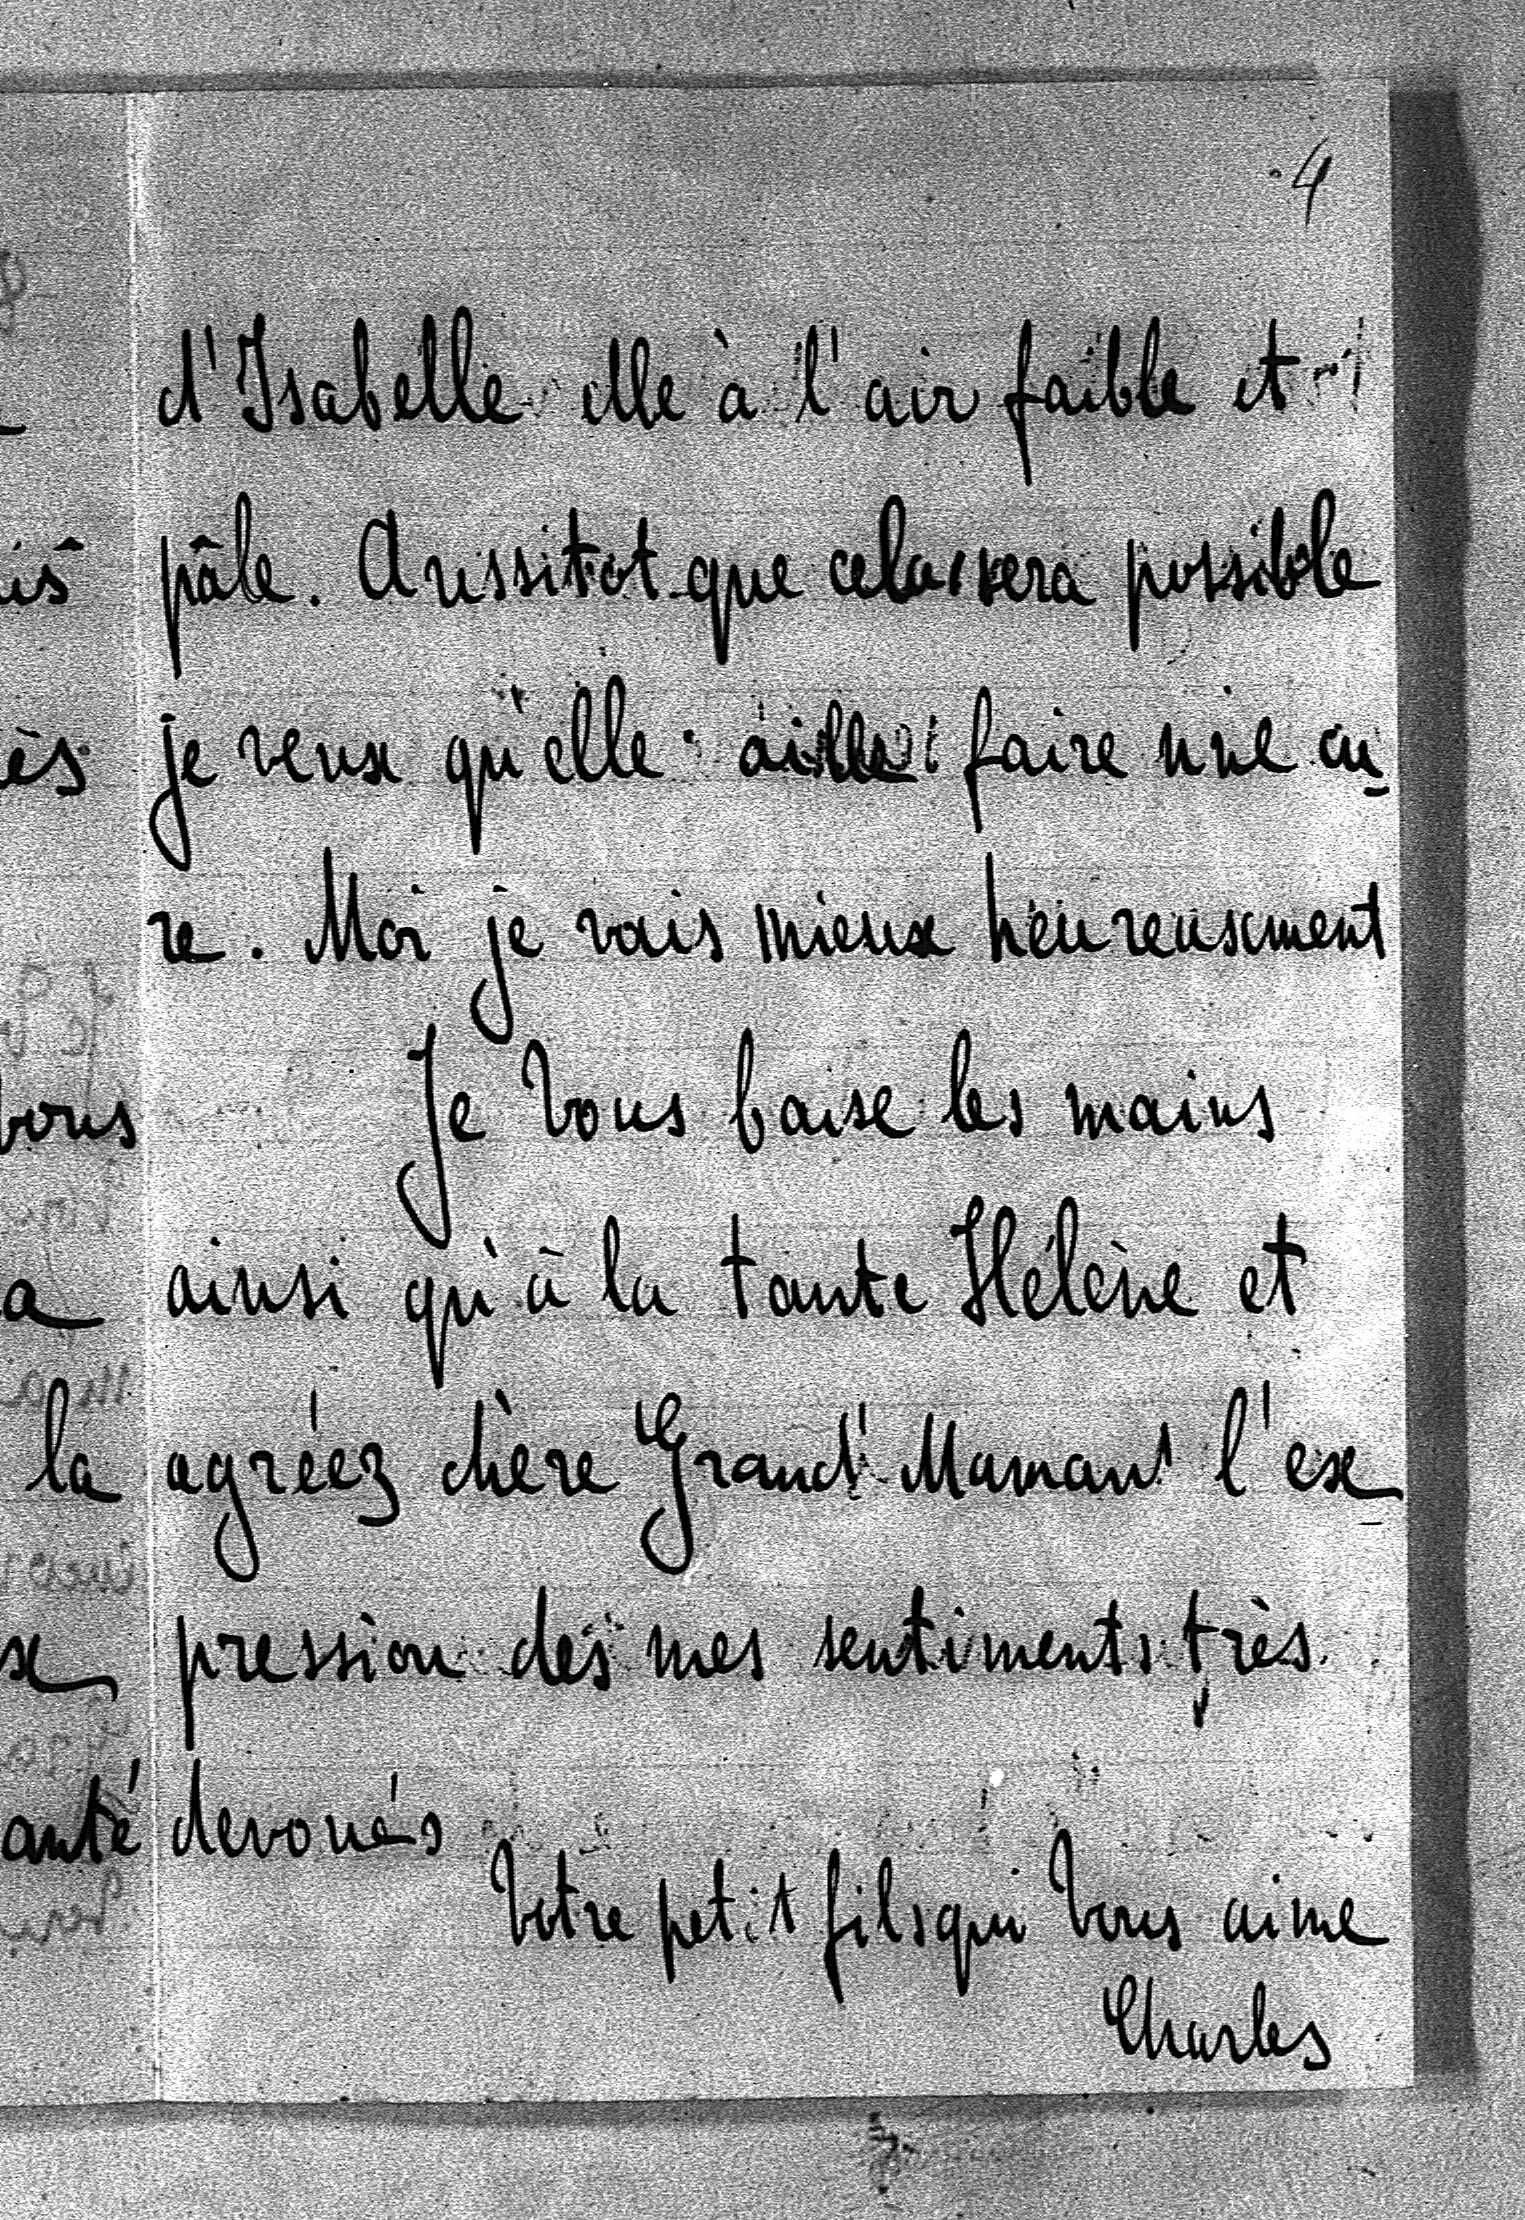 4
d'Isabelle elle à l'air faible et
pâle. Aussitot que cela sera possible
je veux qu'elle aille faire une cu
re. Moi je vais mieux heureusement
Je Vous baise les mains
ainsi qu'à la tante Hélène et
agréez chère Grand'Maman l'ex
pression des mes sentiments très
devoués
Votre petit fils qui Vous aime
Charles
vous
la